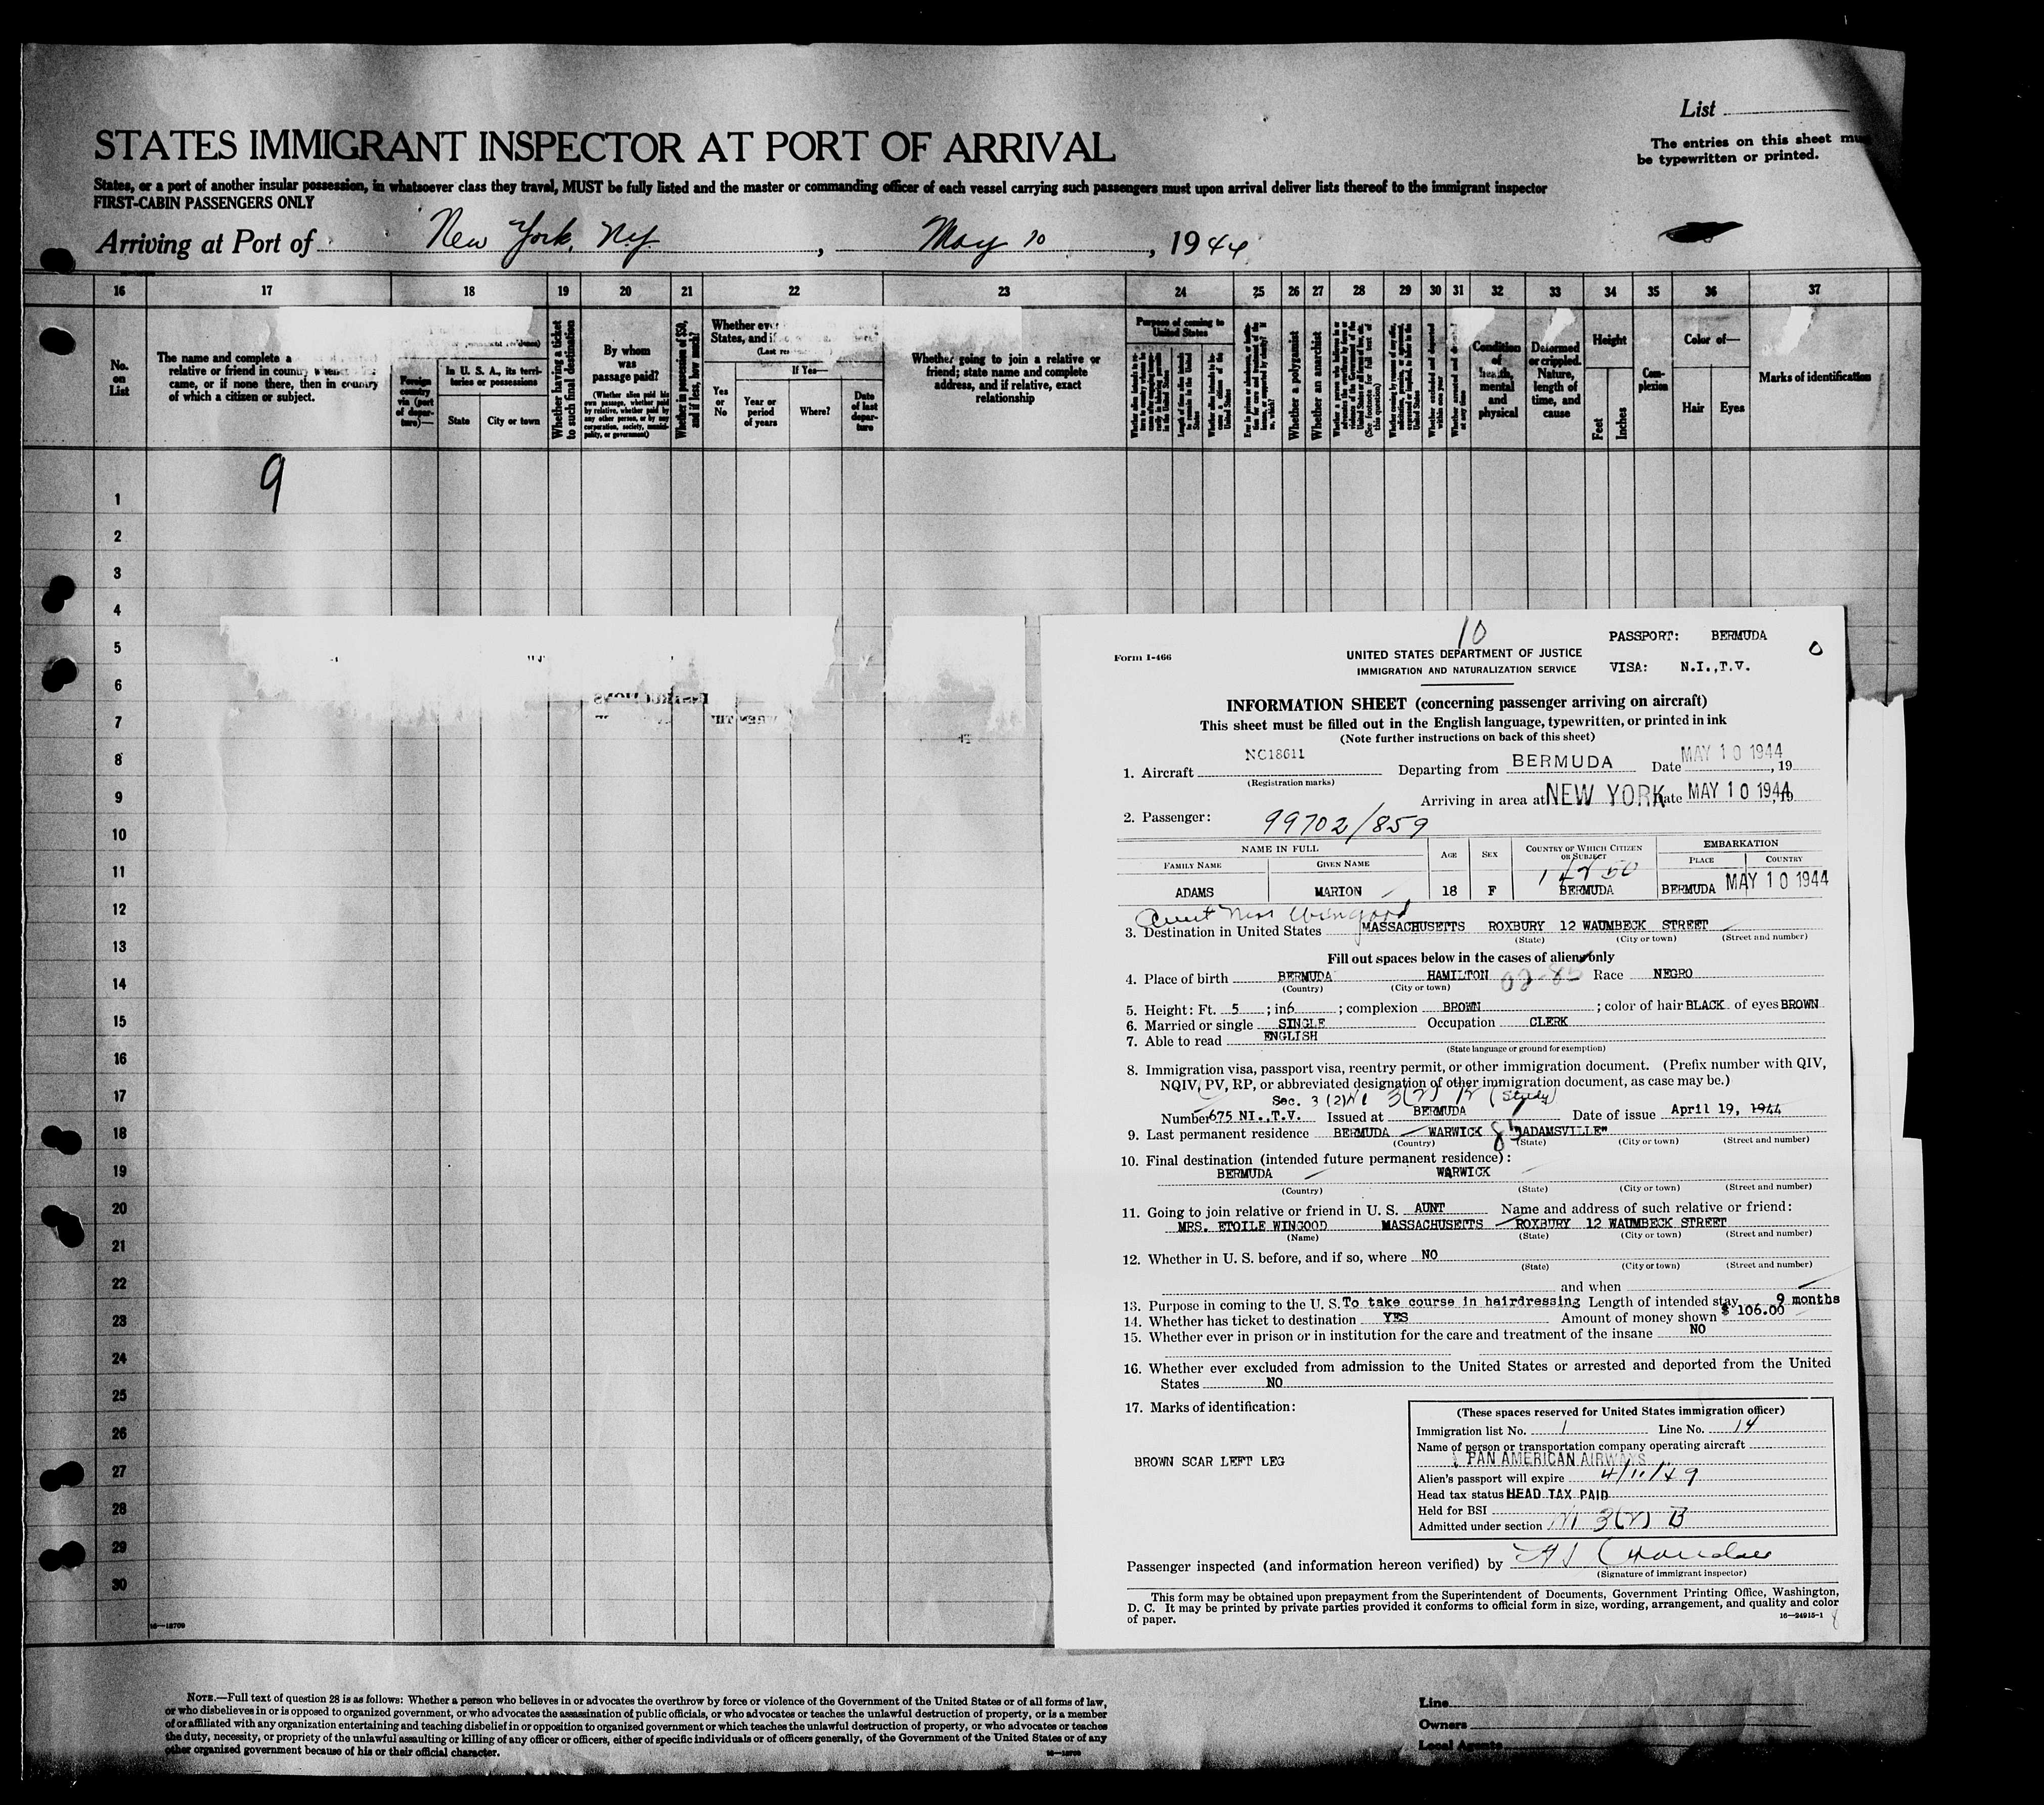 List
The entries on this sheet mu
be typewritten or printed.
STATES IMMIGRANT INSPECTOR AT PORT OF ARRIVAL
States, or a port of another insular possession, in whatsoever class they travel, MUST be fully listed and the master or commanding officer of each vessel carrying such passengers must upon arrival deliver lists thereof to the immigrant inspector
FIRST-CABIN PASSENGERS ONLY
Arriving at Port of New York, N.Y. , May 10 , 1944
16 17 18 19 20 21 22 23 24 25 26 27 28 29 30 31 32 33 34 35 36 37
No. on List
The name and complete a
relative or friend in country whence
came, or if none there, then in country
of which a citizen or subject.
Foreign country via (port of departure)—
In U. S. A., its territories or possessions
State
City or town
Whether having a ticket to such final destination
By whom was passage paid?
(Whether alien paid his own passage, whether paid by relative, whether paid by any other person, or by any corporation, society, municipality, or government)
Whether in possession of $50, and if less, how much?
Whether ever
States, and if
If Yes—
Yes or No
Year or period of years
Where?
Date of last departure
Whether going to join a relative or friend; state name and complete address, and if relative, exact relationship
Purpose of coming to United States
Whether a polygamist
Whether an anarchist
Condition of health, mental and physical
Deformed or crippled. Nature, length of time, and cause
Height
Feet
Inches
Complexion
Color of—
Hair
Eyes
Marks of identification
9
1
2
3
4
5
6
7
8
9
10
11
12
13
14
15
16
17
18
19
20
21
22
23
24
25
26
27
28
29
30
16—18709
10
PASSPORT: BERMUDA
Form I-466
UNITED STATES DEPARTMENT OF JUSTICE
VISA: N.I.,T.V.
IMMIGRATION AND NATURALIZATION SERVICE
INFORMATION SHEET (concerning passenger arriving on aircraft)
This sheet must be filled out in the English language, typewritten, or printed in ink
(Note further instructions on back of this sheet)
1. Aircraft NC18611 Departing from BERMUDA Date MAY 10 1944, 19
(Registration marks)
Arriving in area at NEW YORK Date MAY 10 1944, 19
2. Passenger: 99702/859
NAME IN FULL
FAMILY NAME
GIVEN NAME
AGE
SEX
COUNTRY OF WHICH CITIZEN OR SUBJECT
EMBARKATION
PLACE
COUNTRY
ADAMS MARION 18 F BERMUDA BERMUDA MAY 10 1944
Aunt Mrs Wingood
3. Destination in United States MASSACHUSETTS ROXBURY 12 WAUMBECK STREET
(State) (City or town) (Street and number)
Fill out spaces below in the cases of aliens only
4. Place of birth BERMUDA HAMILTON Race NEGRO
(Country) (City or town)
5. Height: Ft. 5 ; in 6 ; complexion BROWN ; color of hair BLACK of eyes BROWN
6. Married or single SINGLE Occupation CLERK
7. Able to read ENGLISH
(State language or ground for exemption)
8. Immigration visa, passport visa, reentry permit, or other immigration document. (Prefix number with QIV,
NQIV, PV, RP, or abbreviated designation of other immigration document, as case may be.)
Sec. 3 (2) NI 3(2) B (Study)
Number 675 NI.,T.V. Issued at BERMUDA Date of issue April 19, 1944
9. Last permanent residence BERMUDA WARWICK "ADAMSVILLE"
(Country) (State) (City or town) (Street and number)
10. Final destination (intended future permanent residence):
BERMUDA WARWICK
(Country) (State) (City or town) (Street and number)
11. Going to join relative or friend in U. S. AUNT Name and address of such relative or friend:
MRS. ETOILE WINGOOD MASSACHUSETTS ROXBURY 12 WAUMBECK STREET
(Name) (State) (City or town) (Street and number)
12. Whether in U. S. before, and if so, where NO
(State) (City or town) (Street and number)
and when
13. Purpose in coming to the U. S. To take course in hairdressing Length of intended stay 9 months
14. Whether has ticket to destination YES Amount of money shown $ 106.00
15. Whether ever in prison or in institution for the care and treatment of the insane NO
16. Whether ever excluded from admission to the United States or arrested and deported from the United
States NO
17. Marks of identification:
BROWN SCAR LEFT LEG
(These spaces reserved for United States immigration officer)
Immigration list No. 1 Line No. 14
Name of person or transportation company operating aircraft
PAN AMERICAN AIRWAYS
Alien's passport will expire 4/11/49
Head tax status HEAD TAX PAID
Held for BSI
Admitted under section NI 3(2) B
Passenger inspected (and information hereon verified) by
(Signature of immigrant inspector)
This form may be obtained upon prepayment from the Superintendent of Documents, Government Printing Office, Washington,
D. C. It may be printed by private parties provided it conforms to official form in size, wording, arrangement, and quality and color
of paper.
16—24915-1
NOTE.—Full text of question 28 is as follows: Whether a person who believes in or advocates the overthrow by force or violence of the Government of the United States or of all forms of law,
or who disbelieves in or is opposed to organized government, or who advocates the assassination of public officials, or who advocates or teaches the unlawful destruction of property, or is a member
of or affiliated with any organization entertaining and teaching disbelief in or opposition to organized government or which teaches the unlawful destruction of property, or who advocates or teaches
the duty, necessity, or propriety of the unlawful assaulting or killing of any officer or officers, either of specific individuals or of officers generally, of the Government of the United States or of any
other organized government because of his or their official character.
16—18709
Line
Owners
Local Agents